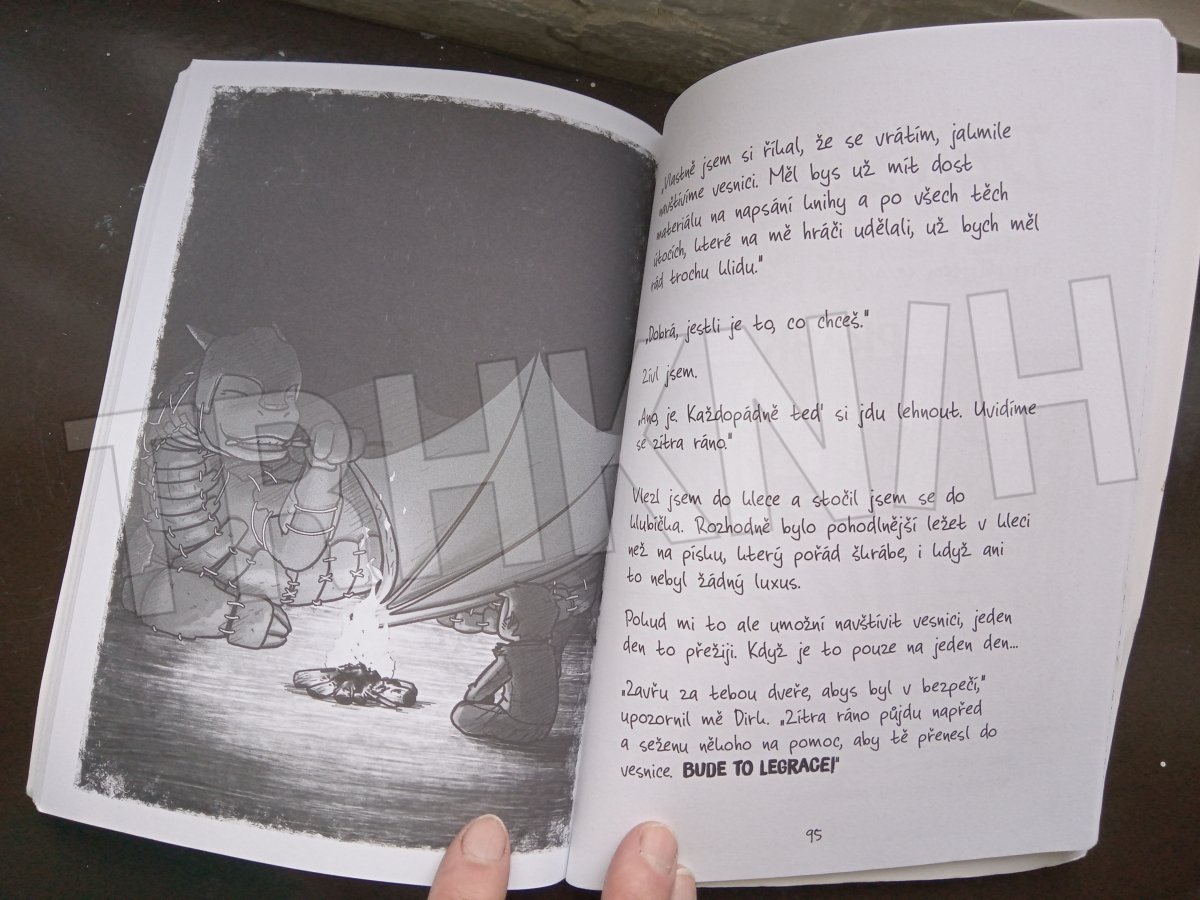 „Vlastně jsem si říkal, že se vrátím, jakmile
navštívíme vesnici. Měl bys už mít dost
materiálu na napsání knihy a po všech těch
útocích, které na mě hráči udělali, už bych měl
rád trochu klidu."
„Dobrá, jestli je to, co chceš."
Zívl jsem.
„Ano, je. Každopádně teď si jdu lehnout. Uvidíme
se zítra ráno."
Vlezl jsem do klece a stočil jsem se do
klubíčka. Rozhodně bylo pohodlnější ležet v kleci
než na písku, který pořád škrábe, i když ani
to nebyl žádný luxus.
Pokud mi to ale umožní navštívit vesnici, jeden
den to přežiji. Když je to pouze na jeden den...
„Zavřu za tebou dveře, abys byl v bezpečí,"
upozornil mě Dirk. „Zítra ráno půjdu napřed
a seženu někoho na pomoc, aby tě přenesl do
vesnice. BUDE TO LEGRACE!"
95
TRHKNIH